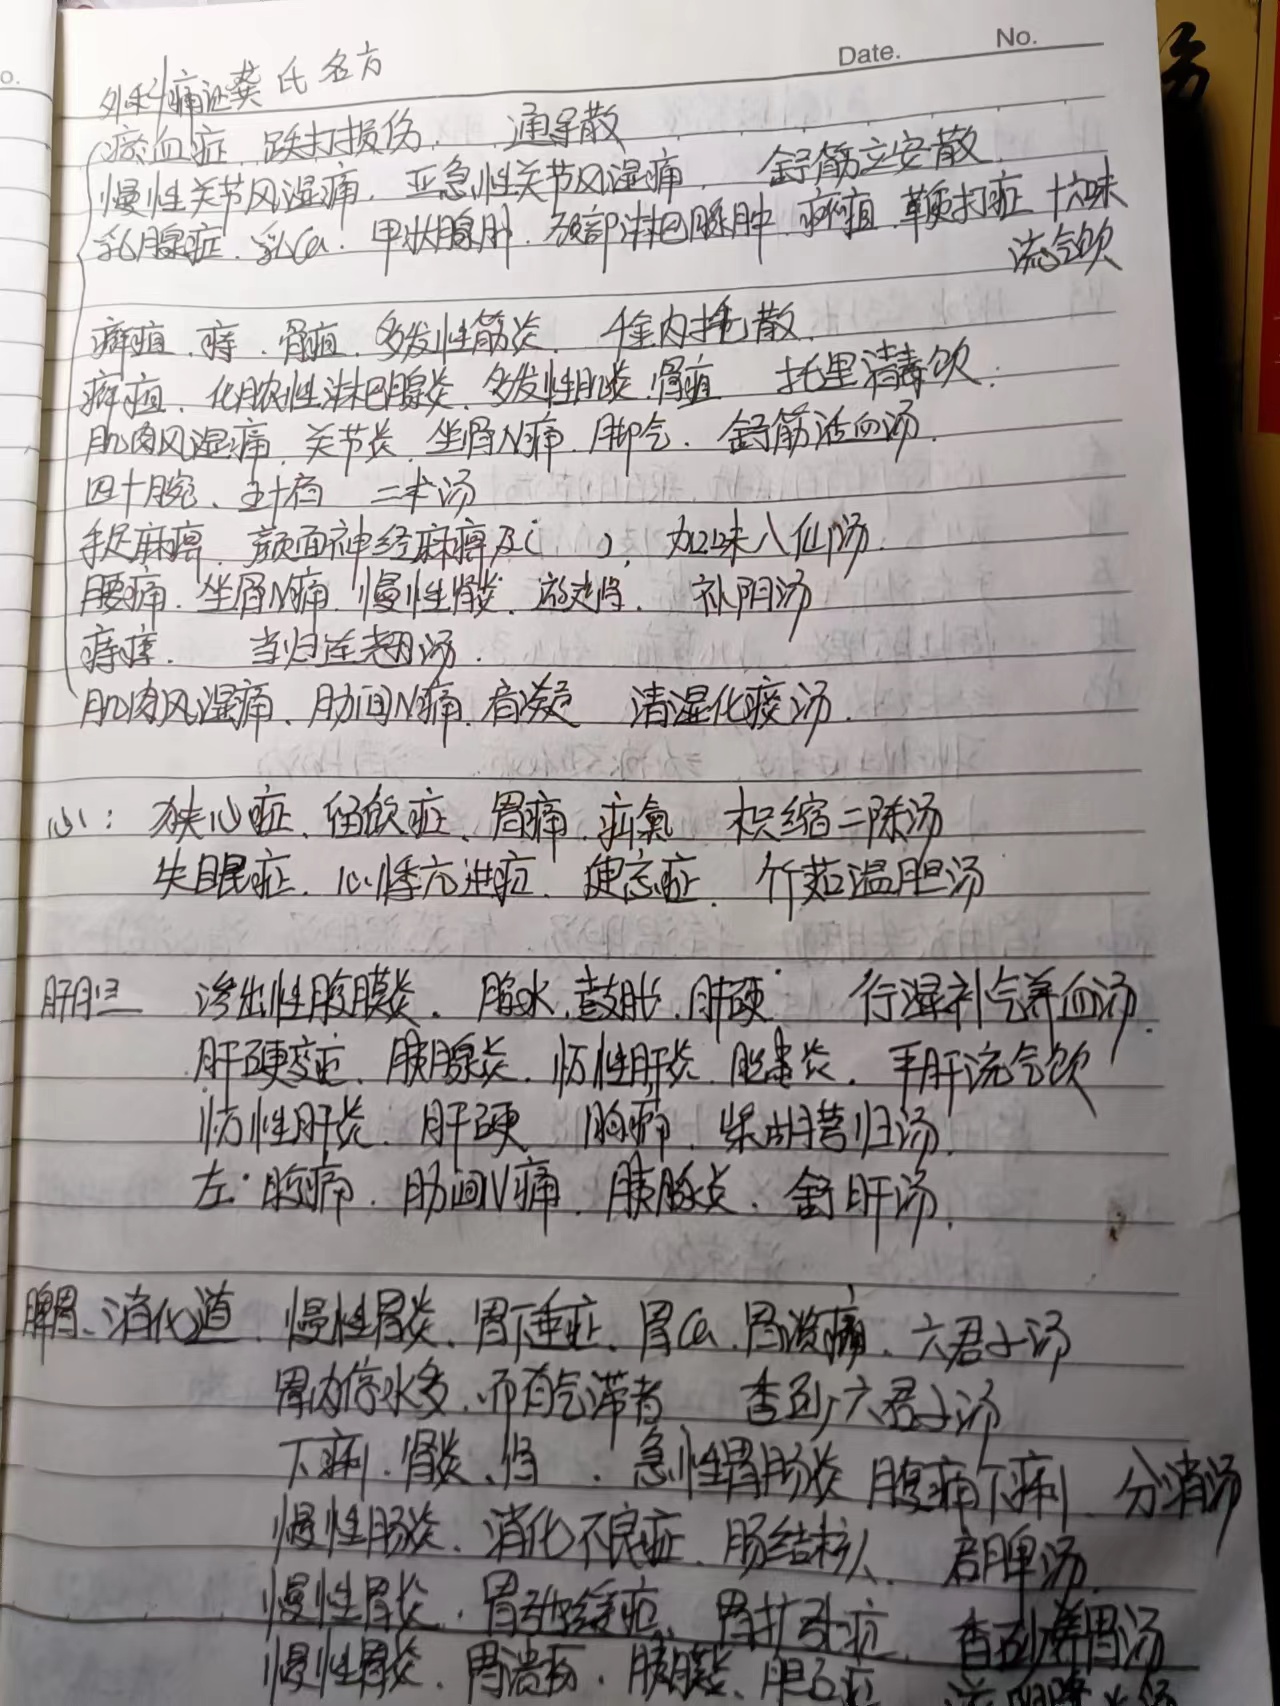 Date. No.
外科痛证龚氏名方
瘀血症、跌打损伤、 通导散
慢性关节风湿痛、亚急性关节风湿痛、 舒筋立安散
乳腺症、乳Ca、甲状腺肿、颈部淋巴腺肿、 十六味
流气饮
癣疽、痔、骨疽、多发性筋炎、 千金内托散
癣疽、化脓性淋巴腺炎、多发性肌炎、骨疽 托里消毒饮
肌肉风湿痛、关节炎、坐骨N痛、脚气、舒筋活血汤
四十腕、五十肩 二术汤
手足麻痹、颜面神经麻痹及( )、加味八仙汤
腰痛、坐骨N痛、慢性肾炎、 补阴汤
当归连翘汤
肌肉风湿痛、肋间N痛、 清湿化痰汤
心: 狭心症、留饮症、胃痛、 枳缩二陈汤
失眠症、心悸亢进症、健忘症、竹茹温胆汤
肝胆 渗出性腹膜炎、腹水、鼓胀、肝硬 行湿补气养血汤
肝硬变症、胰腺炎、慢性肝炎、胆囊炎、平肝流气饮
慢性肝炎、肝硬 胸痛、柴胡 归汤
左:腹痛、肋间N痛、胰腺炎、舒肝汤
脾胃、消化道 慢性胃炎、胃下垂症、胃Ca、胃溃疡、六君子汤
胃内停水多,而有气滞者 香砂六君子汤
下痢、肾炎、 急性胃肠炎 腹痛下痢、分消汤
慢性肠炎、消化不良症、肠结核、 启脾汤
慢性胃炎、胃弛缓症、胃扩张症、香砂养胃汤
慢性胃炎、胃溃疡、胰腺炎、胆石症